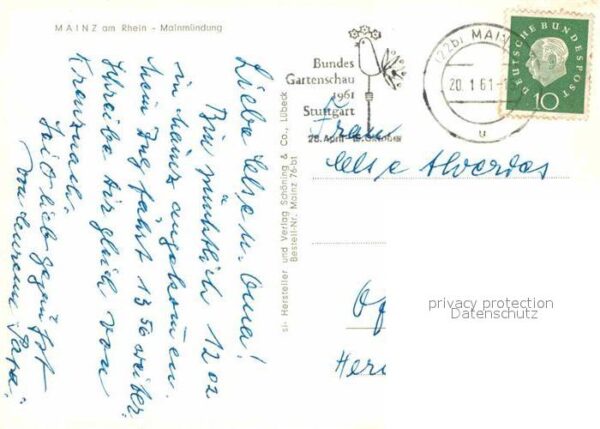 MAINZ am Rhein - Mainmündung
Liebe Else u. Oma!
Bin pünktlich 12 02
in Mainz angekommen.
Mein Zug fährt 13 50 weiter.
Schreibe Dir gleich von
Kreuznach.
Seid lieb gegrüßt
von Eurem Papa.
sl- Hersteller und Verlag Schöning & Co., Lübeck
Bestell-Nr. Mainz 76-bt
Bundes
Gartenschau
1961
Stuttgart
28. April - Oktober
(22b) MAINZ
20. 1. 61.-
u
DEUTSCHE BUNDESPOST
10
Frau
Else
privacy protection
Datenschutz